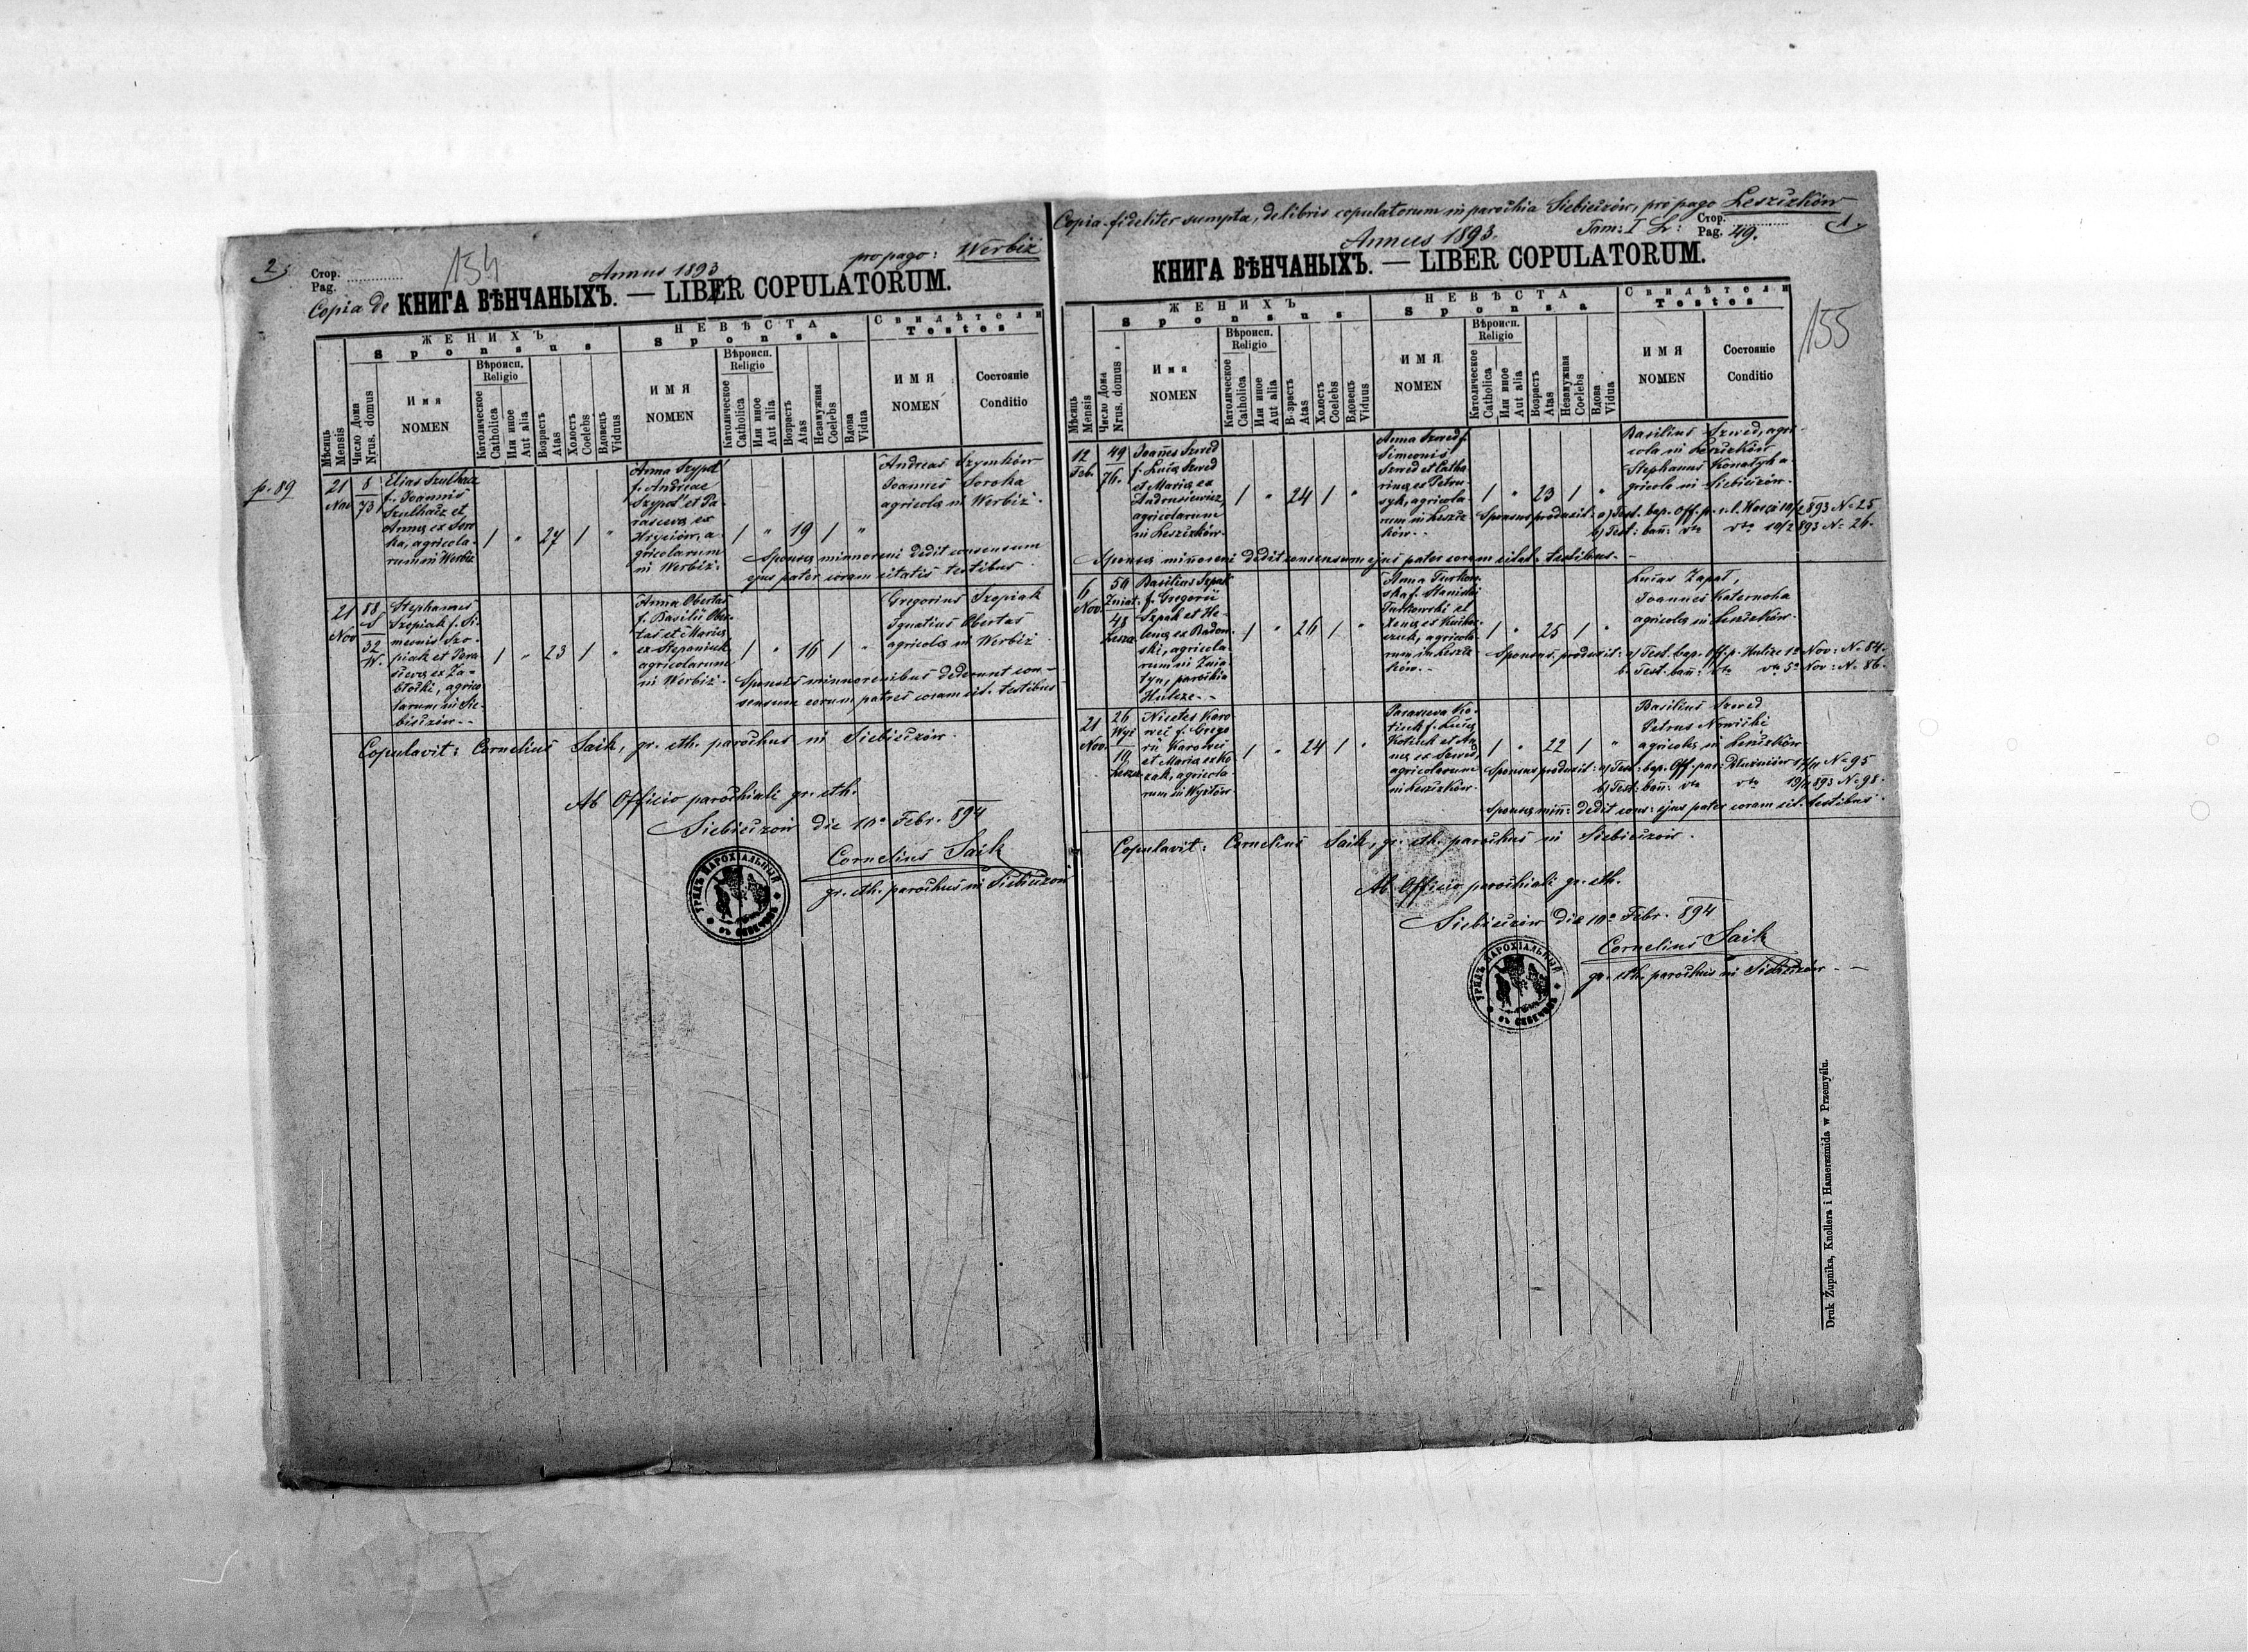 2.
Стор.
Pag.
154
Annus 1893
pro pago: Werbiż
Copia de КНИГА ВѢНЧАНЫХЪ. — LIBER COPULATORUM.
Мѣсяць
Mensis
Число Дома
Nrus. domus
ЖЕНИХЪ
Sponsus
Имя
NOMEN
Вѣроисп.
Religio
Католическое
Catholica
Или иное
Aut alia
Возрасть
Atas
Холость
Coelebs
Вдовець
Viduus
НЕВѢСТА
Sponsa
ИМЯ
NOMEN
Вѣроисп.
Religio
Католическое
Catholica
Или иное
Aut alia
Возрасть
Atas
Незамужная
Coelebs
Вдова
Vidua
Свидѣтели
Testes
ИМЯ
NOMEN
Состояніе
Conditio
p. 89
21
Nov
8
73
Elias Szulhacz
f. Joannis
Szulhacz et
Annæ ex Soro
ka, agricola-
rum in Werbiż
1 " 27 1 "
Anna Szypot
f. Andreae
Szypot et Pa-
rascevæ ex
Hryciów, a-
gricolarum
in Werbiż.
1 " 19 1 "
Andreas Szymków
Joannes Soroka
agricolæ in Werbiż.
Sponsæ minnoreni dedit consensum
ejus pater coram citatis testibus
21
Nov
88
S
32
W.
Stephanus
Szopiak f. Si-
meonis Szo-
piak et Para
scevæ ex Za-
błocki, agrico
larum in Sie-
bieczów.-
1 " 23 1 "
Anna Obertas
f. Basilii Ober-
tas et Mariæ
ex Stepaniuk
agricolarum
in Werbiż.
1 " 16 1 "
Gregorius Szopiak
Ignatius Obertas
agricolæ in Werbiż
Sponsis minnorenibus dederunt con-
sensum eorum patres coram cit. testibus
Copulavit: Cornelius Saik, gr. cth. parochus in Siebieczów.
Ab Officio parochiali gr. cth.
Siebieczów die 10a Febr. 894
Cornelius Saik
gr. cth. parochus in Siebieczów
УРЯДЪ ПАРОХІАЛЬНЫЙ
Copia fideliter sumpta, de libris copulatorum in parochia Siebieczów, pro pago Leszczków
Annus 1893.
Tom: I
Стор.
Pag. 49.
1.
КНИГА ВѢНЧАНЫХЪ. — LIBER COPULATORUM.
155
Мѣсяць
Mensis
Число Дома
Nrus. domus
ЖЕНИХЪ
Sponsus
Имя
NOMEN
Вѣроисп.
Religio
Католическое
Catholica
Или иное
Aut alia
Возрасть
Atas
Холость
Coelebs
Вдовець
Viduus
НЕВѢСТА
Sponsa
ИМЯ
NOMEN
Вѣроисп.
Religio
Католическое
Catholica
Или иное
Aut alia
Возрасть
Atas
Незамужная
Coelebs
Вдова
Vidua
Свидѣтели
Testes
ИМЯ
NOMEN
Состояніе
Conditio
12
Feb.
49
76.
Joannes Szwed
f. Lucæ Szwed
et Mariæ ex
Andrusiewicz,
agricolarum
in Leszczków
1 " 24 1 "
Anna Szwed f.
Simeonis
Szwed et Catha
rinæ ex Petru-
syk, agricola-
rum in Leszcz
ków.-
1 " 23 1 "
Basilius Szwed, agri-
cola in Leszczków
Stephanus Konatyk a-
gricola in Siebieczów.
Sponsus produxit: a) Test. bap. Off. p. r. l. 10/2 893 No 25
b) Test: bann: dto dto 10/2 893 No 26.
Sponsæ minnoreni dedit consensum ejus pater coram citat. testibus.-
6
Nov.
50
Zniat.
48
Leszcz.
Basilius Szpak
f. Gregorii
Szpak et He-
lenæ ex Radom-
ski, agricola-
rum in Znia-
tyn, parochia
Hulcze.-
1 " 26 1 "
Anna Turkow-
ska f. Stanislai
Turkowski et
Xeniæ ex
agricola-
rum in Leszcz
ków.-
1 " 25 1 "
Lucas Zapał,
Joannes Katernoha
agricolæ in Leszczków.
Sponsus, produxit: a) Test. bap. Off. p. Hulcze 1a Nov: No 84.
b. Test. bann: dto dto 5a Nov: No 86.
21
Nov.
26
Wyż
19.
Leszcz
Nicetes Karo
weć f. Grego
rii Karoweć
et Mariæ ex Ko
zak, agricola-
rum in Wyżłów
1 " 24 1 "
Parasceva Ko-
tiuk f. Lucæ
Kotiuk et An
næ ex Szwed,
agricolarum
in Leszczków
1 " 22 1 "
Basilius Szwed
Petrus Nowicki
agricolæ in Leszczków
Sponsus produxit: a) Test: bap. Off. par: Dłużniów 17/11 No 95
b) Test: bann: dto dto 19/11 893 No 98.
Sponsæ minn: dedit cons: ejus pater coram cit. testibus.
Copulavit: Cornelius Saik, gr. cth. parochus in Siebieczów.
Ab Officio parochiali gr. cth.
Siebieczów die 10a Febr. 894
Cornelius Saik
gr. cth. parochus in Siebieczów.-
УРЯДЪ ПАРОХІАЛЬНЫЙ
Druk Żupnika, Knollera i Hamerszmida w Przemyślu.